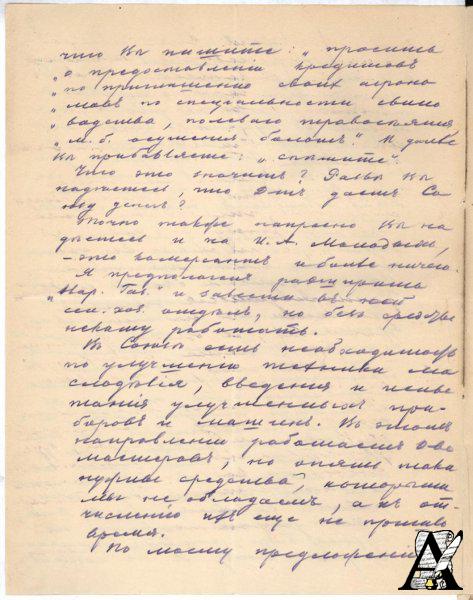 что Вы пишите: „просить
„о предоставлении кредитовъ
„по приглашению своихъ агроно
„мовъ по специальности свино
„водства, полеваго травосеяния
„м. б. осушения болотъ“. И далее
Вы прибавляете: „спешите“.
Что это значитъ? Разве Вы
надеетесь, что Д-тъ дастъ Со
юзу денегъ?
Точно также напрасно Вы на
деетесь и на И. А. Молодыхъ,
– это коммерсантъ и более ничего.
Я предполагалъ
„Нар. Газ.“ и завести въ ней
сел. хоз. отделъ, но безъ средствъ
нескому работать.
Въ Союзе есть необходимость
по улучшению техники ма
слоделия, введения и испы
тания улучшенныхъ при-
боровъ и машинъ. Въ этомъ
направлении работаетъ два
мастеровъ, но опять таки
нужны средства, которыми
мы не обладаемъ, а къ от-
числению ихъ еще не пришло
время.
По моему предложению